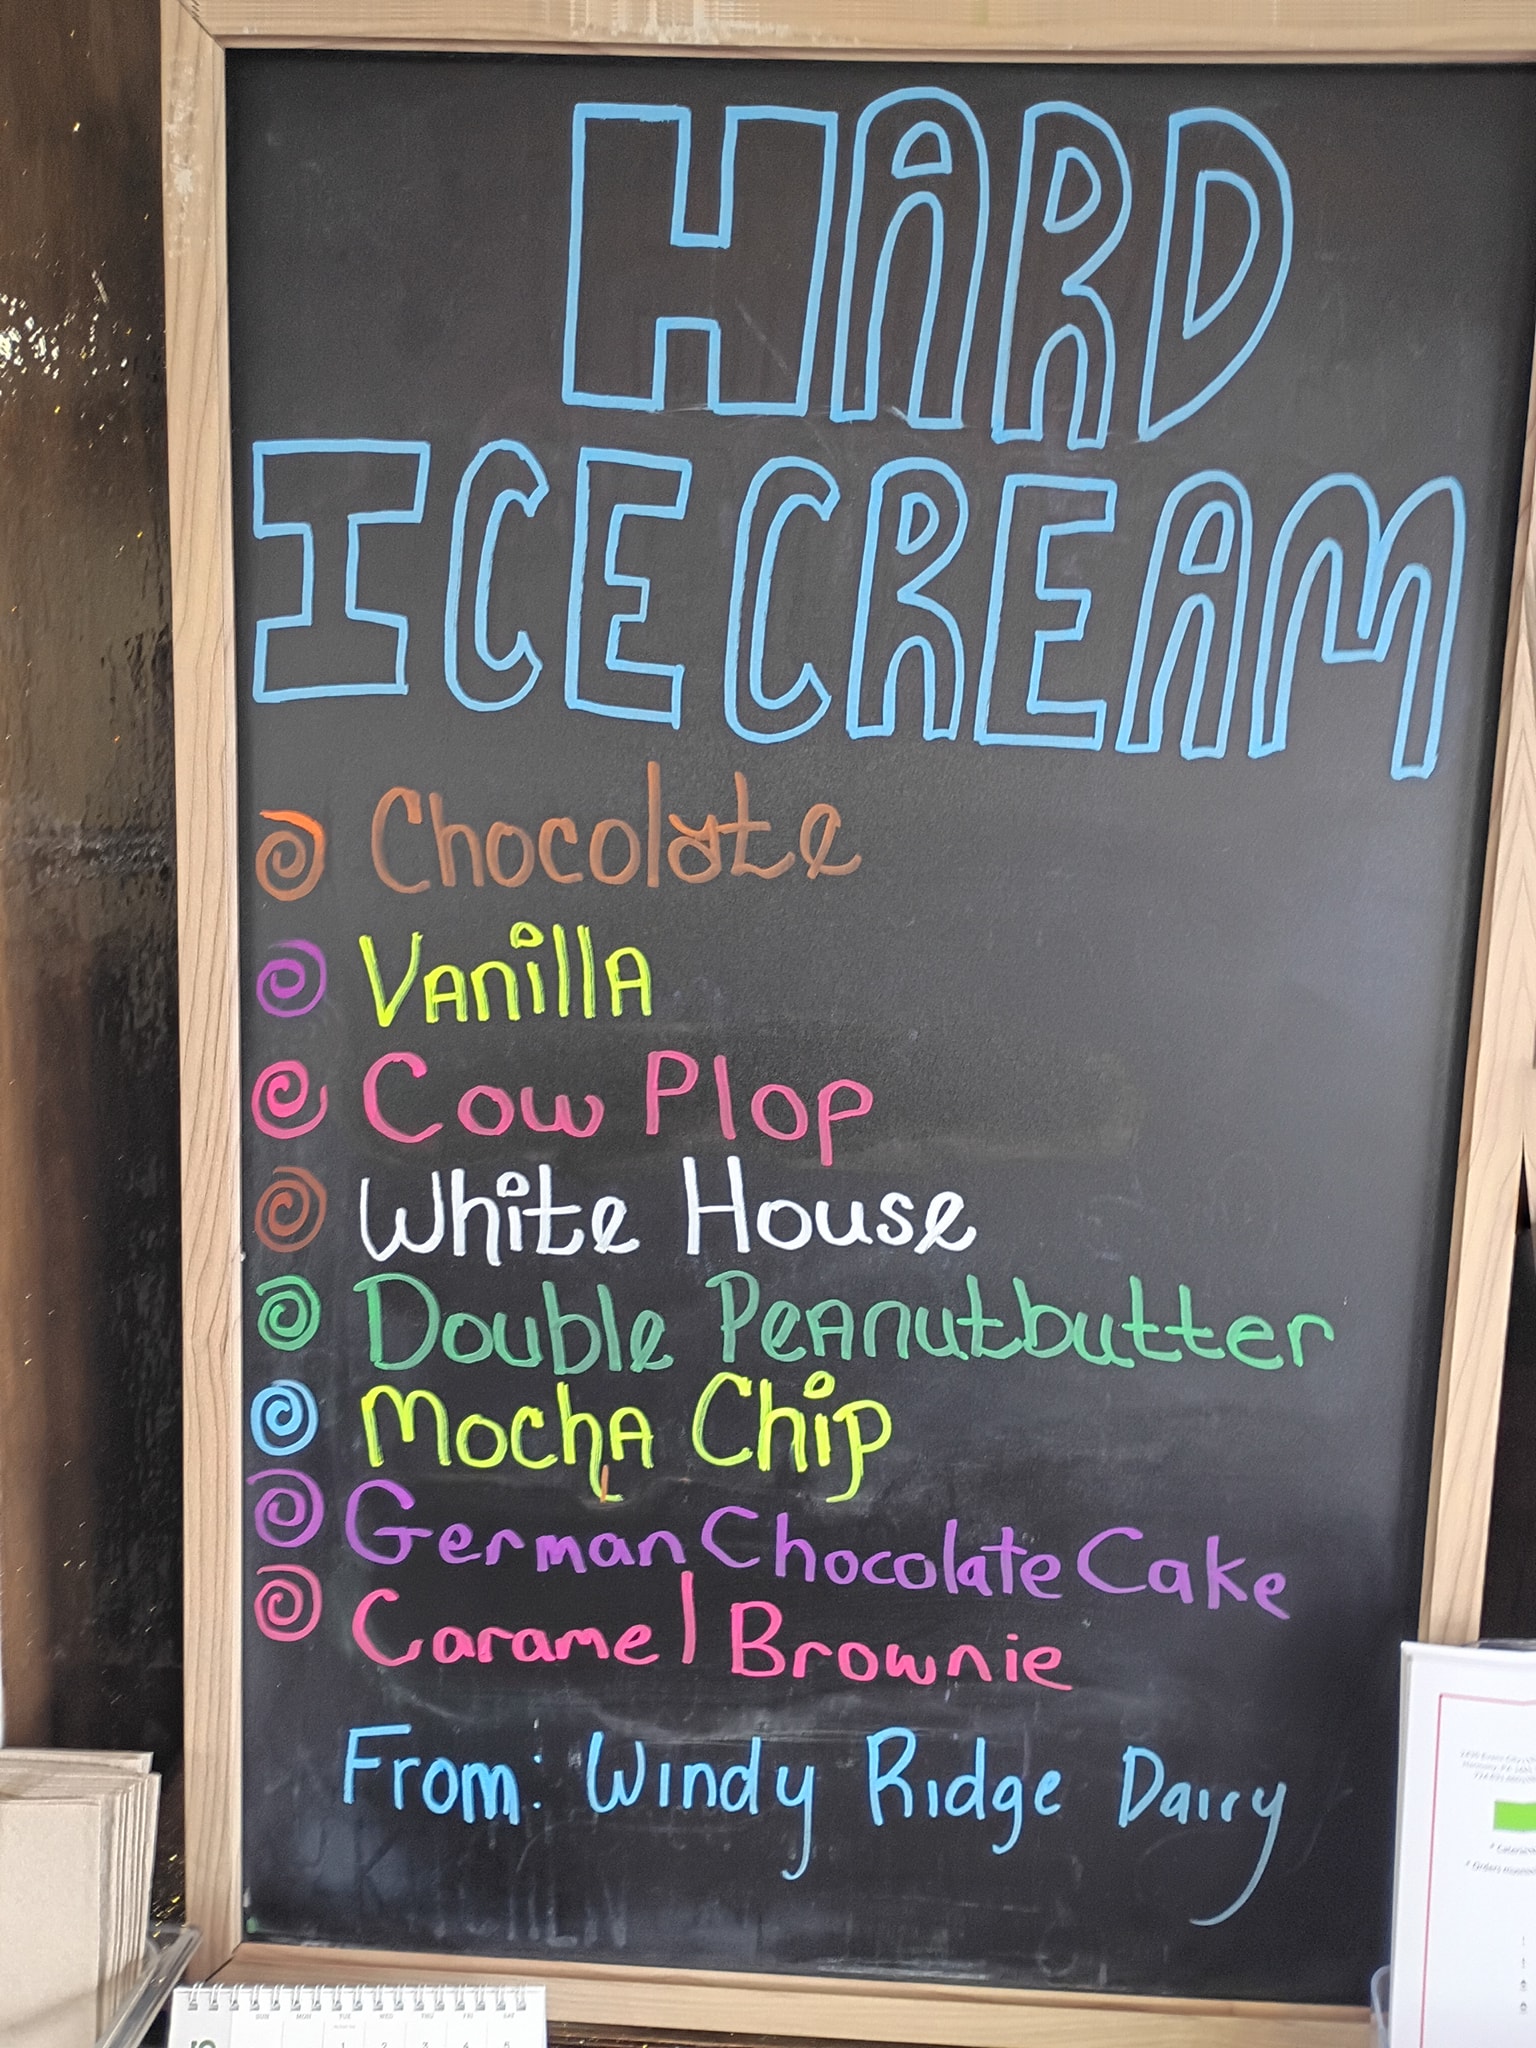 HARD
ICE CREAM
Chocolate
Vanilla
Cow Plop
White House
Double Peanutbutter
Mocha Chip
German Chocolate Cake
Caramel Brownie
From: Windy Ridge Dairy
SUN MON TUE WED THU FRI SAT
1 2 3 4 5